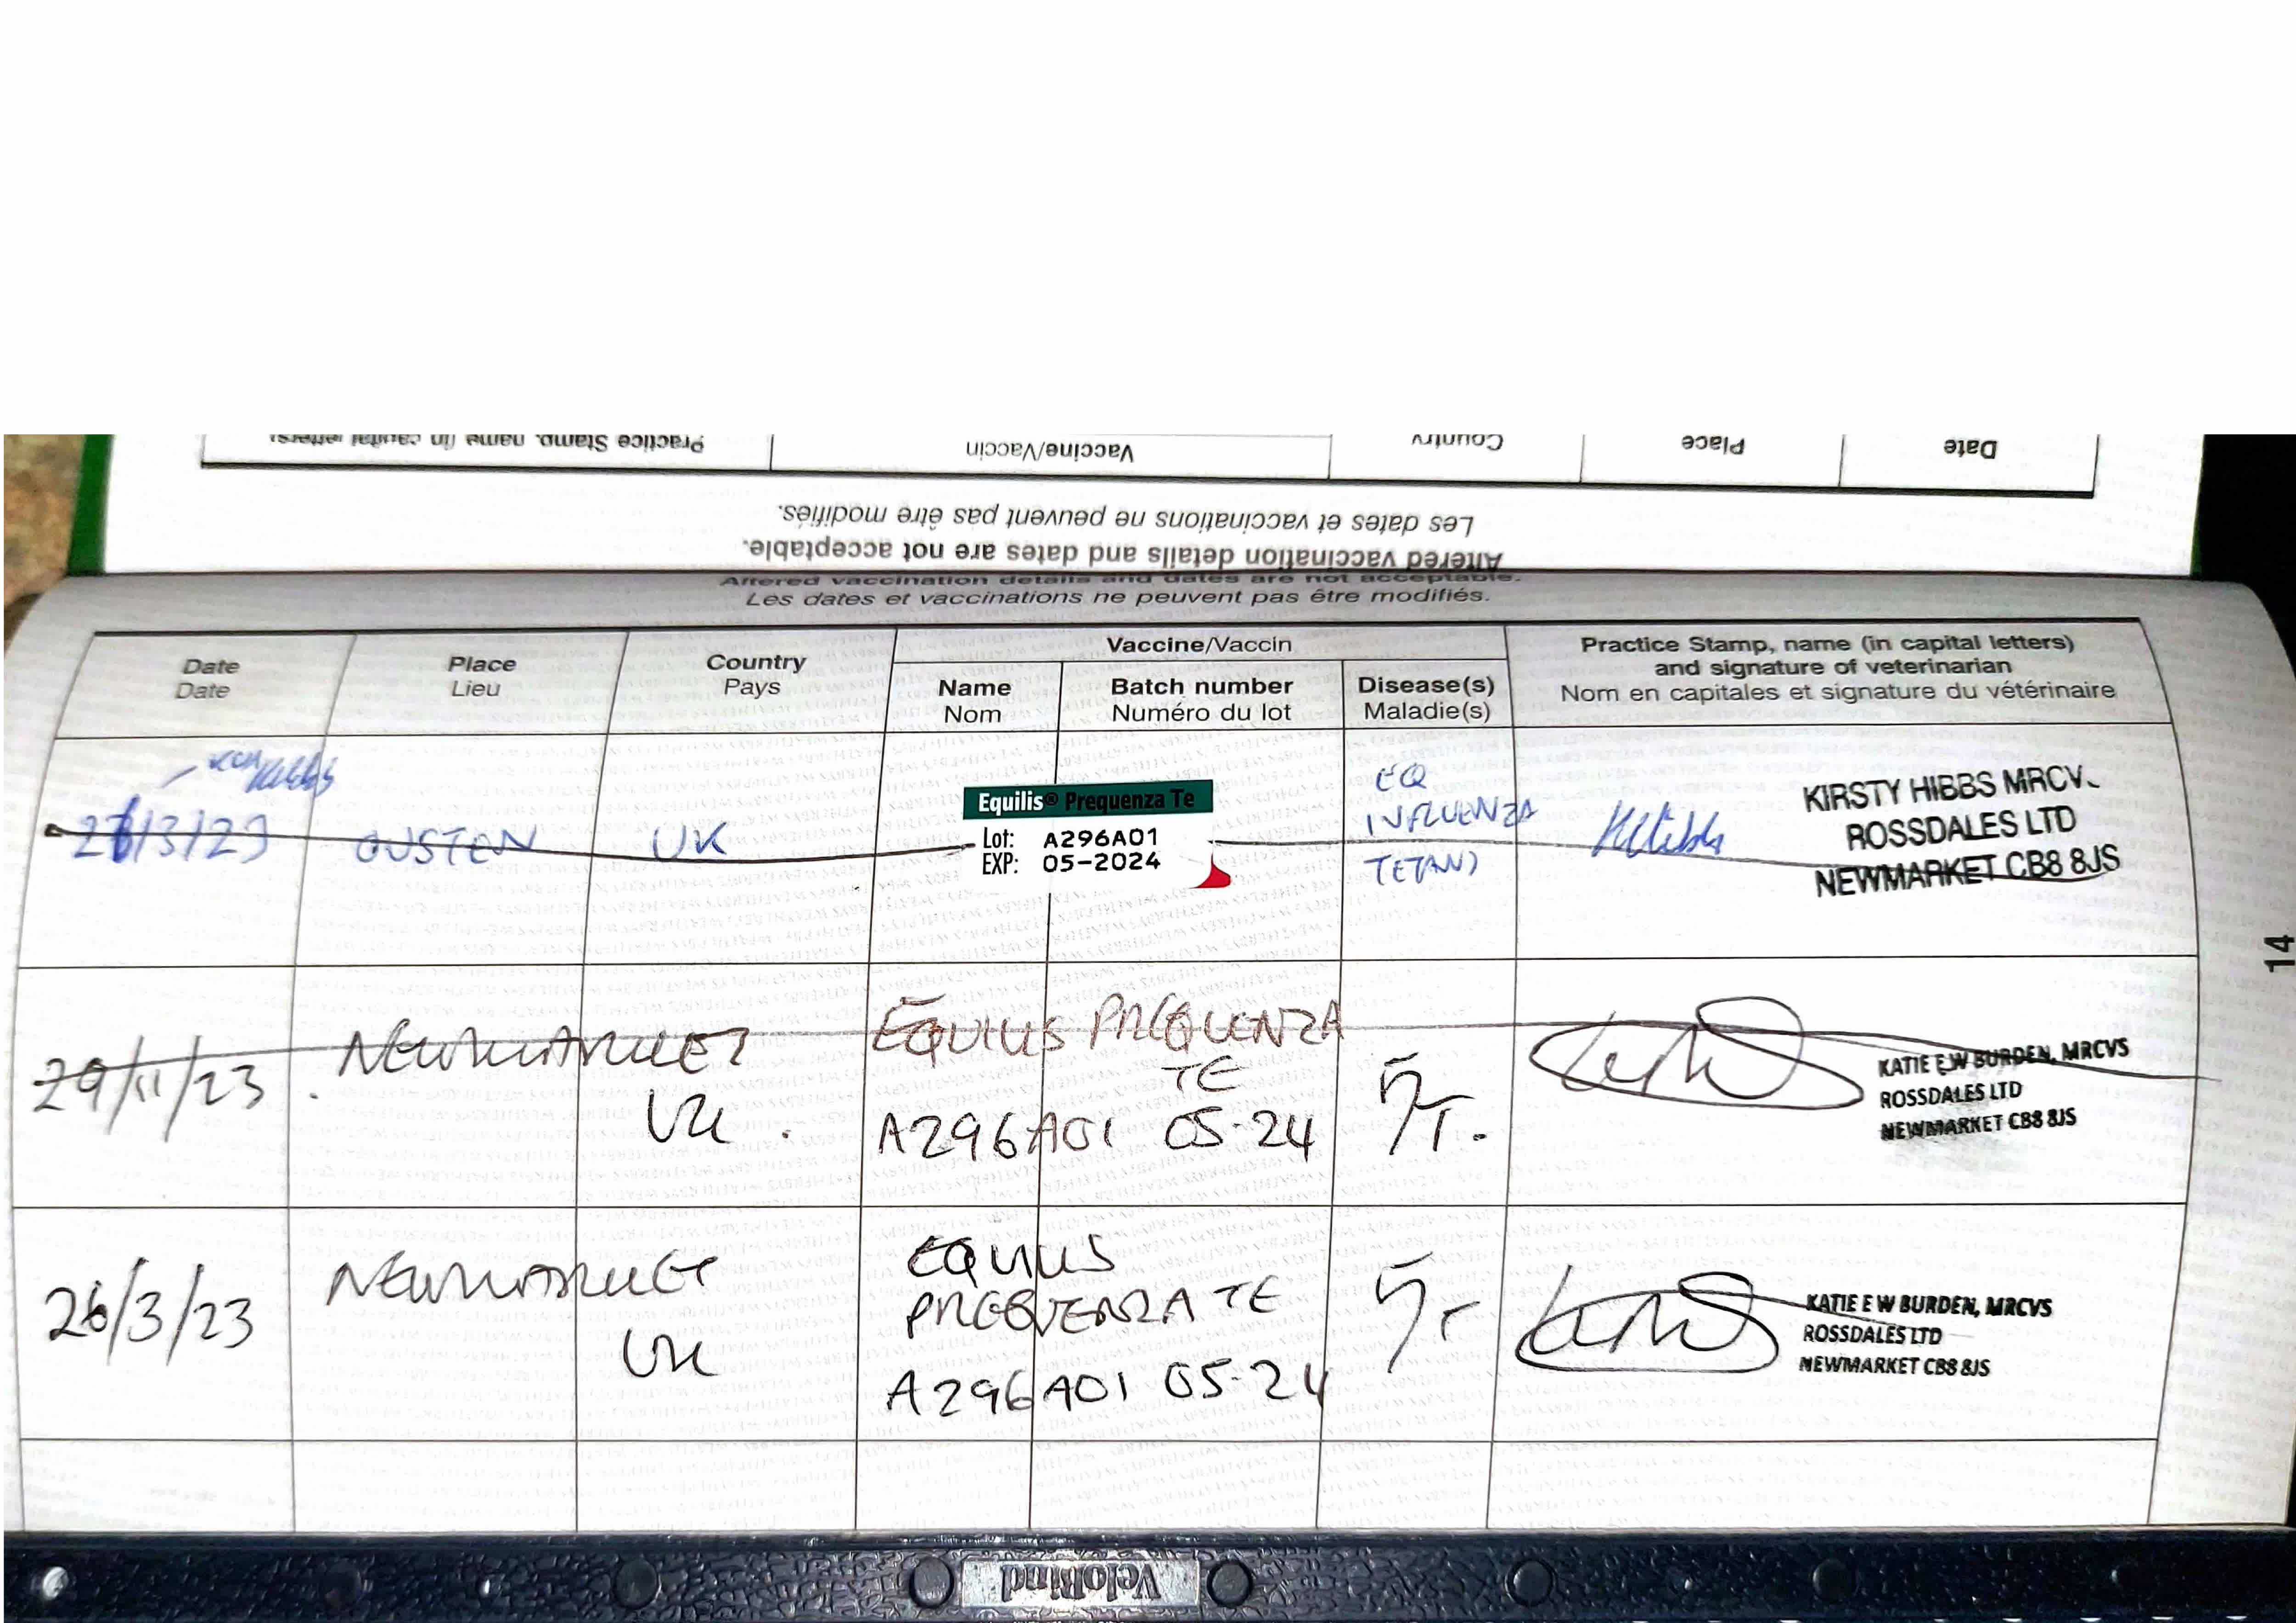 Practice Stamp, name (in capital letters)
Vaccine/Vaccin
Country
Place
Date
Les dates et vaccinations ne peuvent pas être modifiés.
Altered vaccination details and dates are not acceptable.
Altered vaccination details and dates are not acceptable.
Les dates et vaccinations ne peuvent pas être modifiés.
Date
Date
Place
Lieu
Country
Pays
Vaccine/Vaccin
Name
Nom
Batch number
Numéro du lot
Disease(s)
Maladie(s)
Practice Stamp, name (in capital letters)
and signature of veterinarian
Nom en capitales et signature du vétérinaire
/3/23
OUSTON
UK
Equilis® Prequenza Te
Lot: A296A01
EXP: 05-2024
EQ
INFLUENZA
TETANUS
KHibbs
KIRSTY HIBBS MRCV
ROSSDALES LTD
NEWMARKET CB8 8JS
29/11/23
NEWMARKET
UK.
EQUILIS PREQUENZA
TE
A296A01 05-24
F/T.
KATIE E W BURDEN, MRCVS
ROSSDALES LTD
NEWMARKET CB8 8JS
26/3/23
NEWMARKET
UK
EQUILIS
PREQUENZA TE
A296A01 05-24
F/T
KATIE E W BURDEN, MRCVS
ROSSDALES LTD
NEWMARKET CB8 8JS
14
VeloBind